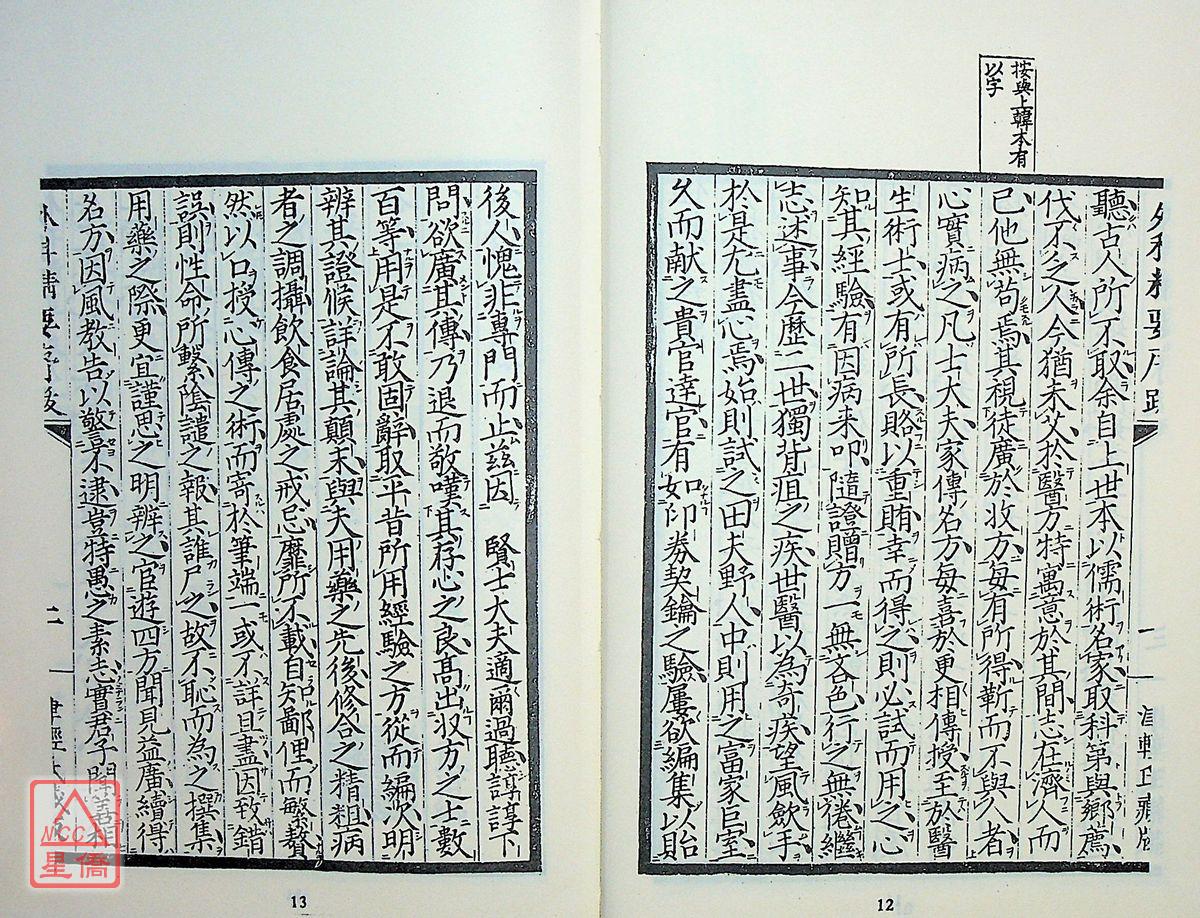 按與上韓本有
以字
聽古人所不取余自上世本以儒術名家取科第與鄉薦
代不乏人今猶未艾於醫方特寓意於其間志在濟人而
已他無苟焉其視徒廣於收方每有所得靳而不與人者
心實病之凡士大夫家傳名方每喜於更相傳授至於醫
生術士或有所長賂以重賄幸而得之則必試而用之心
知其經驗有因病来叩隨證贈方一無吝色行之無倦繼
志述事今歷二世獨背疽之疾世醫以為奇疾望風歛手
於是尤盡心焉始則試之田夫野人中則用之富家巨室
久而献之貴官達官有如印券契鑰之驗屢欲編集以貽
12
後人愧非專門而止茲因 賢士大夫適爾過聽諄諄下
問欲廣其傳乃退而敬嘆其存心之良髙出収方之士數
百等用是不敢固辭取平昔所用經驗之方從而編次明
辨其證候詳論其顛末與夫用藥之先後修合之精粗病
者之調攝飲食居處之戒忌靡所不載自知鄙俚而繁贅
然以口授心傳之術而寄於筆端一或不詳且盡因致錯
誤則性命所繫陰譴之報其誰尸之故不恥而為之撰集
用藥之際更宜謹思之明辨之官遊四方聞見益廣續得
名方因風教告以警不逮豈特愚之素志實君子聞善相
二
13
NCC
星僑